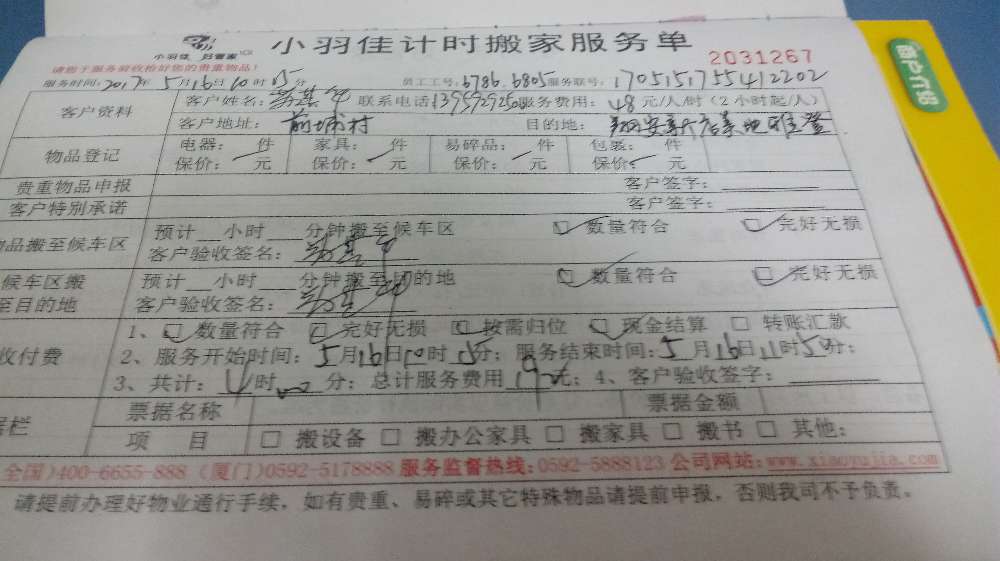 小羽佳 好管家
小羽佳计时搬家服务单
2031267
请您于服务验收检好您的贵重物品!
服务时间:2017年5月16日10时15分 员工工号:6786.6805 服务联号:170515175541 2202
客户资料
客户姓名: 联系电话 服务费用:48元/人/时(2小时起/人)
客户地址:前埔村 目的地:
物品登记
电器: 件 家具: 件 易碎品: 件 包裹: 件
保价: 元 保价: 元 保价: 元 保价: 元
贵重物品申报 客户签字:
客户特别承诺 客户签字:
物品搬至候车区
预计__小时___分钟搬至候车区 数量符合 完好无损
客户验收签名:
候车区搬至目的地
预计__小时___分钟搬至目的地 数量符合 完好无损
客户验收签名:
收付费
1、数量符合 完好无损 按需归位 现金结算 转账汇款
2、服务开始时间:5月16日10时15分;服务结束时间:5月16日11时50分;
3、共计:4时 分;总计服务费用192元;4、客户验收签字:
票据名称 票据金额
据栏
项 目 搬设备 搬办公家具 搬家具 搬书 其他:
全国)400-6655-888 (厦门)0592-5178888 服务监督热线:0592-5888123 公司网站:www.xiaoyujia.com
请提前办理好物业通行手续,如有贵重、易碎或其它特殊物品请提前申报,否则我司不予负责。